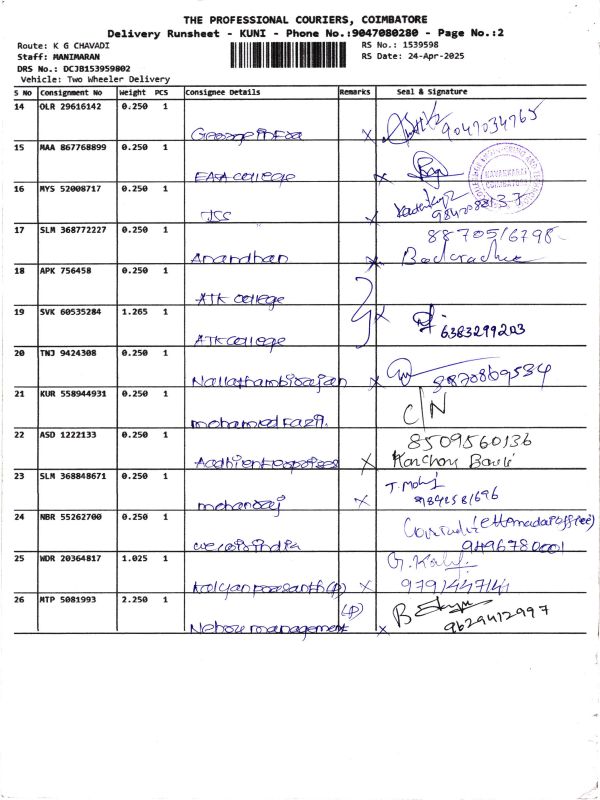 THE PROFESSIONAL COURIERS, COIMBATORE
Delivery Runsheet - KUNI - Phone No.:9047080280 - Page No.:2
Route: K G CHAVADI RS No.: 1539598
Staff: MANIMARAN RS Date: 24-Apr-2025
DRS No.: DCJB153959802
Vehicle: Two Wheeler Delivery
S No Consignment No Weight PCS Consignee Details Remarks Seal & Signature
14 OLR 29616142 0.250 1
x 9047034765
15 MAA 867768899 0.250 1
EASA college x
16 MYS 52008717 0.250 1
JSS x
17 SLM 368772227 0.250 1 8870516798
Anandhan x
18 APK 756458 0.250 1
ATK college
19 SVK 60535284 1.265 1
ATK college x 6383299203
20 TNJ 9424308 0.250 1
Nallathambirajan x 8870869534
21 KUR 558944931 0.250 1 C/N
mohamed razil.
22 ASD 1222133 0.250 1 8509560136
x Kanchan
23 SLM 368848671 0.250 1 T. Mohj
mohanraj x 9842581696
24 NBR 55262700 0.250 1 (ettimadai office)
9496780001
25 WDR 20364817 1.025 1
Kalyan prasanth (P) x 9791447141
26 MTP 5081993 2.250 1 (P)
Nehru management x 9629412997